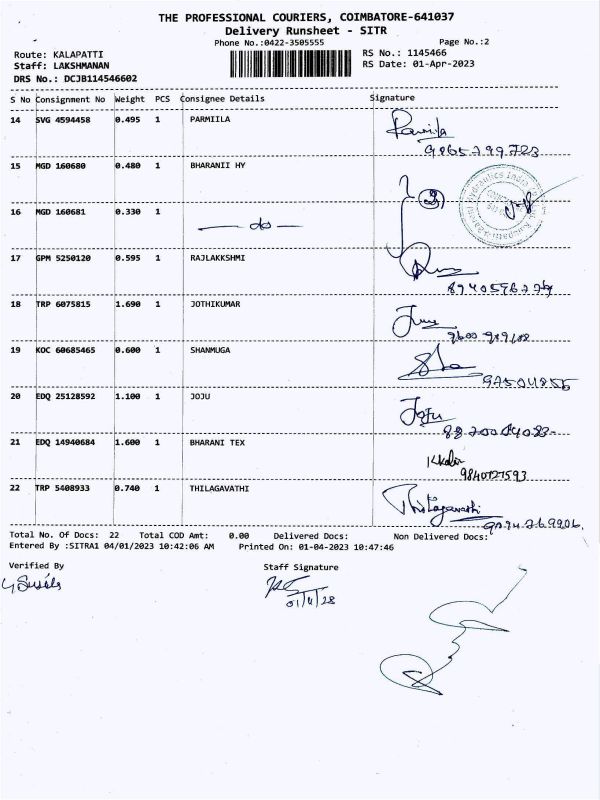 THE PROFESSIONAL COURIERS, COIMBATORE-641037
Delivery Runsheet - SITR
Phone No.:0422-3505555 Page No.:2
Route: KALAPATTI RS No.: 1145466
Staff: LAKSHMANAN RS Date: 01-Apr-2023
DRS No.: DCJB114546602
S No Consignment No Weight PCS Consignee Details Signature
14 SVG 4594458 0.495 1 PARMIILA
9865799723
15 MGD 160680 0.480 1 BHARANII HY
16 MGD 160681 0.330 1 — do —
17 GPM 5250120 0.595 1 RAJLAKKSHMI
18 TRP 6075815 1.690 1 JOTHIKUMAR
19 KOC 60685465 0.600 1 SHANMUGA
20 EDQ 25128592 1.100 1 JOJU Joju
21 EDQ 14940684 1.600 1 BHARANI TEX
9840727593
22 TRP 5408933 0.740 1 THILAGAVATHI Thilagavathi
Total No. Of Docs: 22 Total COD Amt: 0.00 Delivered Docs: Non Delivered Docs:
Entered By :SITRA1 04/01/2023 10:42:06 AM Printed On: 01-04-2023 10:47:46
Verified By Staff Signature